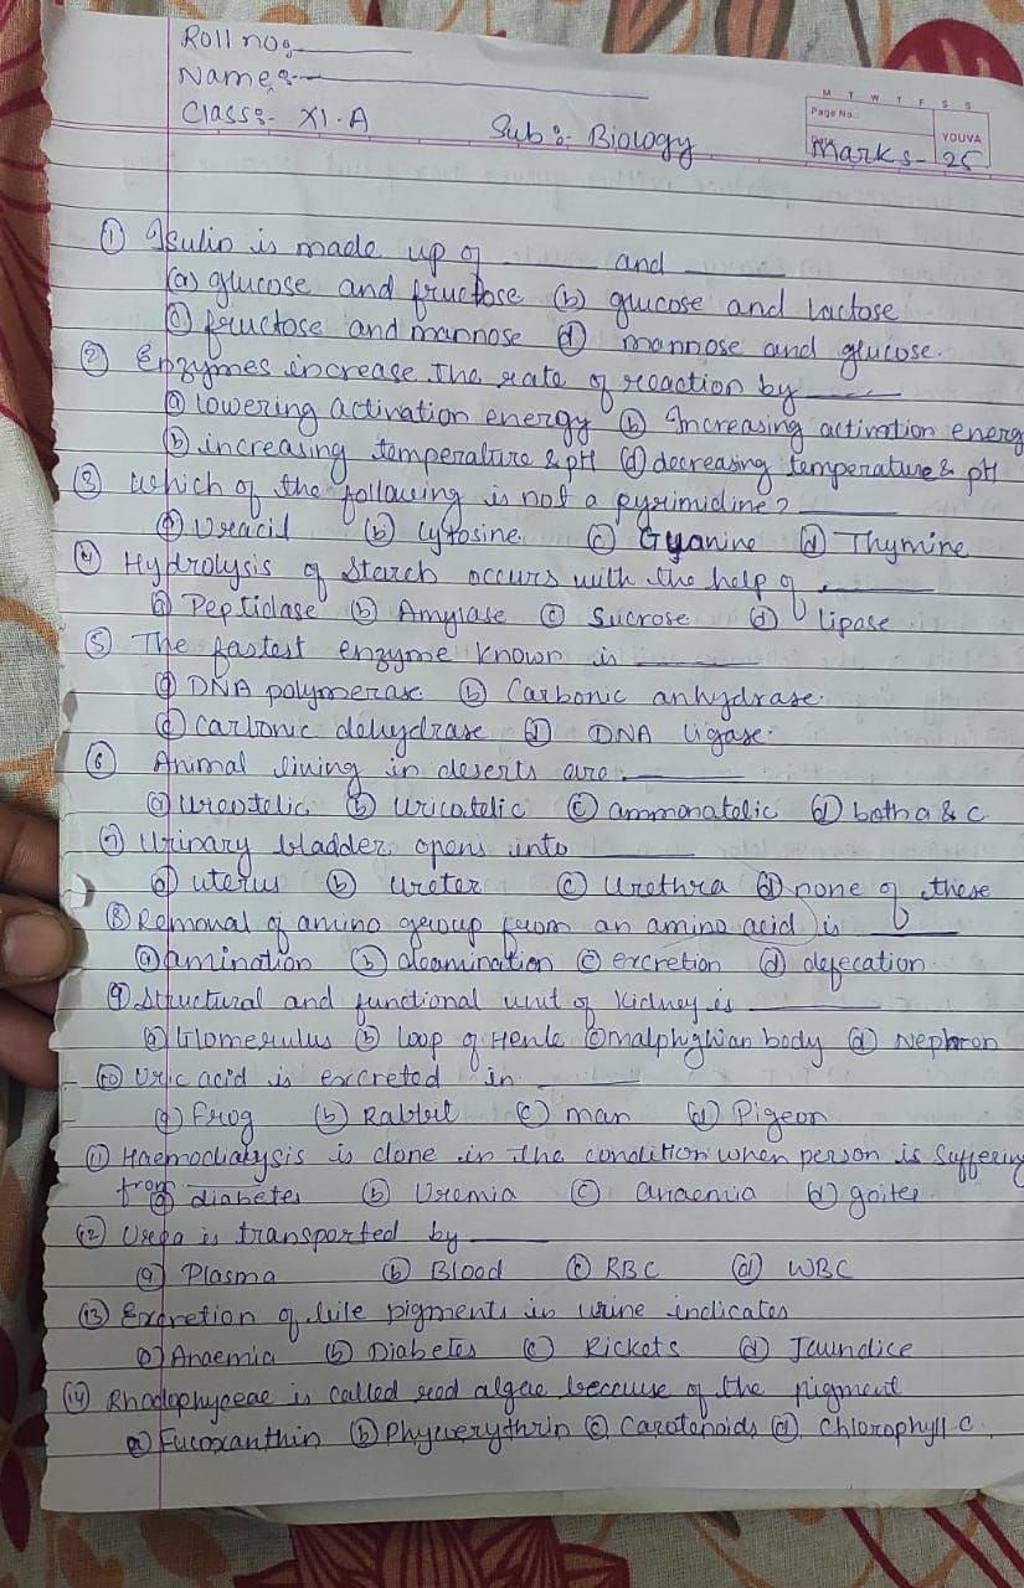 Roll no:-
Name:-
Class:- XI-A
Sub:- Biology
M T W T F S S
Page No.:
YOUVA
Marks- 25
① Isulin is made up of ______ and ______
(a) glucose and fructose (b) glucose and lactose
(c) fructose and mannose (d) mannose and glucose.
② Enzymes increase the rate of reaction by ______
(a) lowering activation energy (b) Increasing activation energ
(b) increasing temperature & pH (d) decreasing temperature & pH
③ Which of the following is not a pyrimidine? ______
(a) Uracil (b) Cytosine (c) Guanine (d) Thymine
④ Hydrolysis of Starch occurs with the help of ______
(a) Peptidase (b) Amylase (c) Sucrose (d) lipase
⑤ The fastest enzyme known is ______
(a) DNA polymerase (b) Carbonic anhydrase.
(c) Carbonic dehydrase (d) DNA ligase.
⑥ Animal living in deserts are ______
(a) Ureotelic (b) Uricotelic (c) ammonatelic (d) both a & c
⑦ Urinary bladder opens into ______
(a) uterus (b) Ureter (c) Urethra (d) none of these
⑧ Removal of amino group from an amino acid is ______
(a) amination (b) deamination (c) excretion (d) defecation.
⑨ Structural and functional unit of kidney is ______
(a) Glomerulus (b) loop of Henle (c) malphighian body (d) Nephron
⑩ Uric acid is excreted in ______
(a) Frog (b) Rabbit (c) man (d) Pigeon
⑪ Haemodialysis is done in the condition when person is suffering
from (a) diabetes (b) Uremia (c) anaemia (d) goiter
⑫ Urepa is transported by ______
(a) Plasma (b) Blood (c) RBC (d) WBC
⑬ Excretion of bile pigments in urine indicates
(a) Anaemia (b) Diabetes (c) Rickets (d) Jaundice
⑭ Rhodophyceae is called red algae because of the pigment
(a) Fucoxanthin (b) Phycoerythrin (c) Carotenoids (d) Chlorophyll c